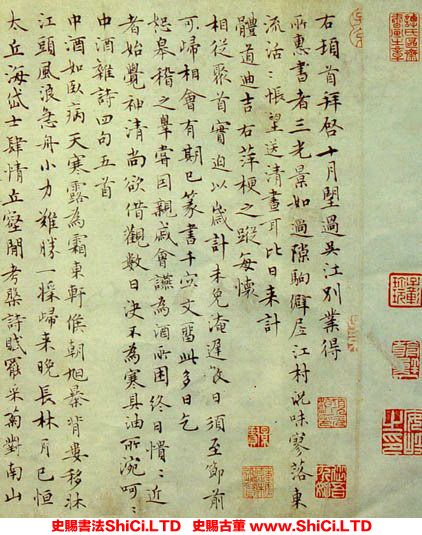 右頓首拜啓十月望過吳江別業得
所惠書者三光景如過隙駒僻居江村况味寥落東
流活〻悵望送清晝耳比日来計
體道迪吉右萍梗之蹤每懷
相從聚首實迫以歲計未免淹遲後日須至節前
可歸相會有期已篆書千字文留此多日乞
恕皋稽之舉嘗因親戚會讌為酒所困終日憒〻近
者始覺神清尚欲借觀數日決不為寒具油所涴呵〻
中酒雜詩四句五首
中酒如臥病天寒露為霜東軒候朝旭暴背婁移牀
江頭風浪急舟小力難勝一採歸来晚長林月已恒
太丘海岱士肆情丘壑間考槃詩賦罷采菊對南山
史賜書法ShiCi.LTD 史賜古董 www.ShiCi.LTD